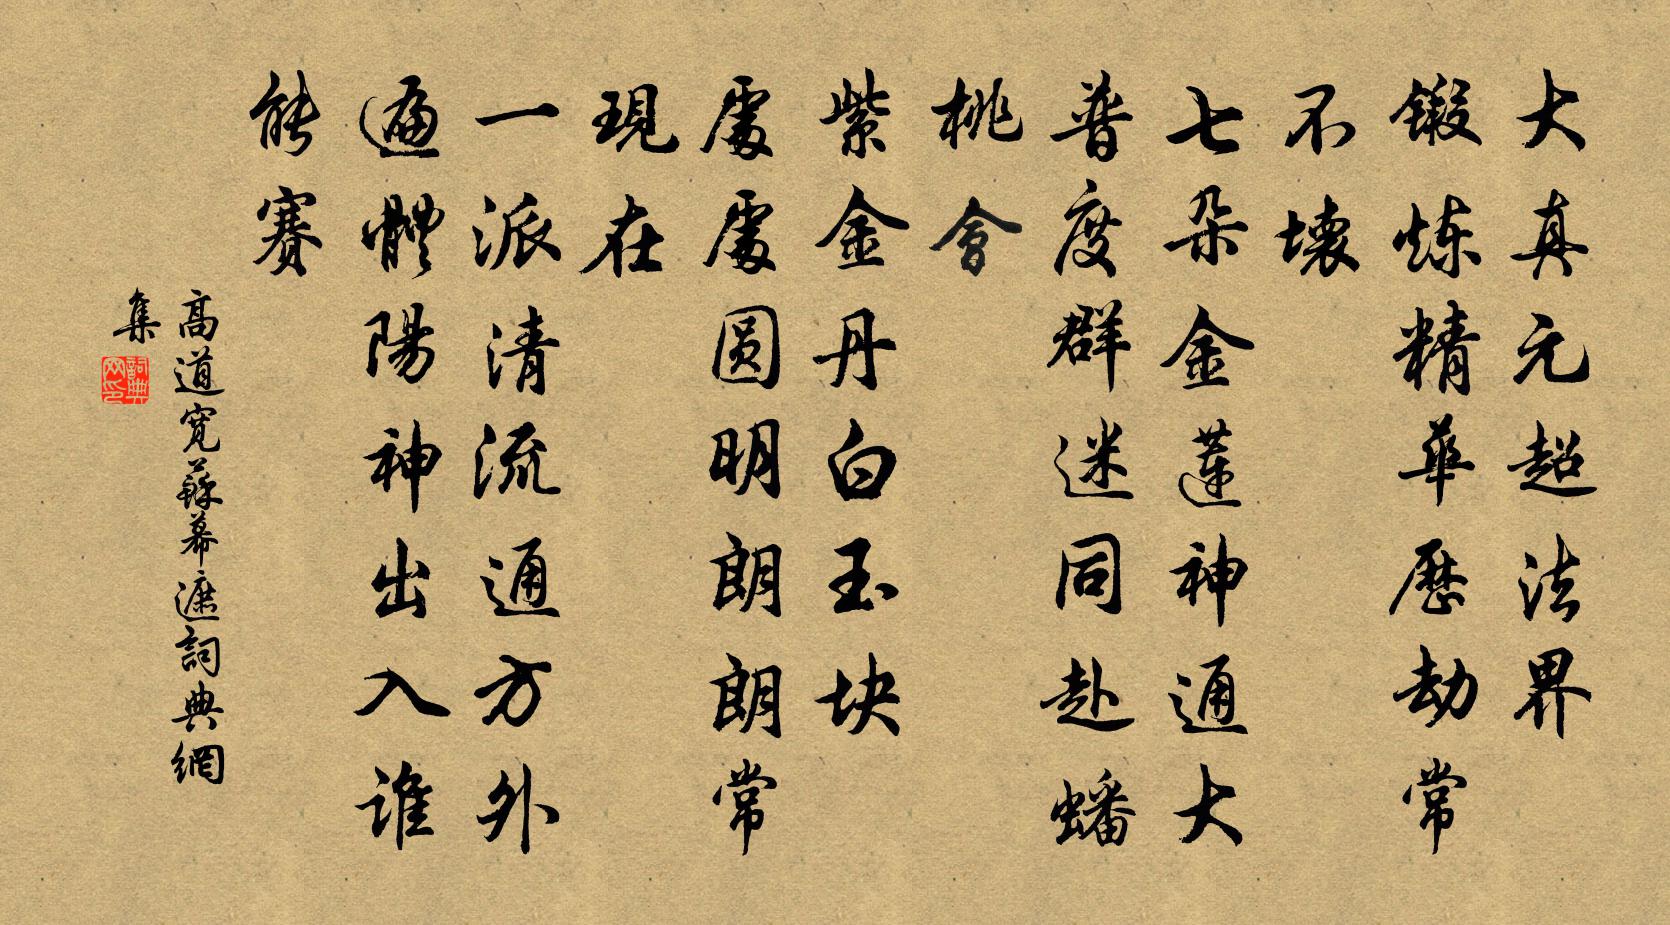 大真元超法界
鍛炼精華歷劫常
不壊
七朵金蓮神通大
普度群迷同赴蟠
桃會
紫金丹白玉块
處處圆明朗朗常
現在
一派清流通方外
遍體陽神出入誰
能賽
高道寬蘇幕遮詞典網
集
詞典
网印